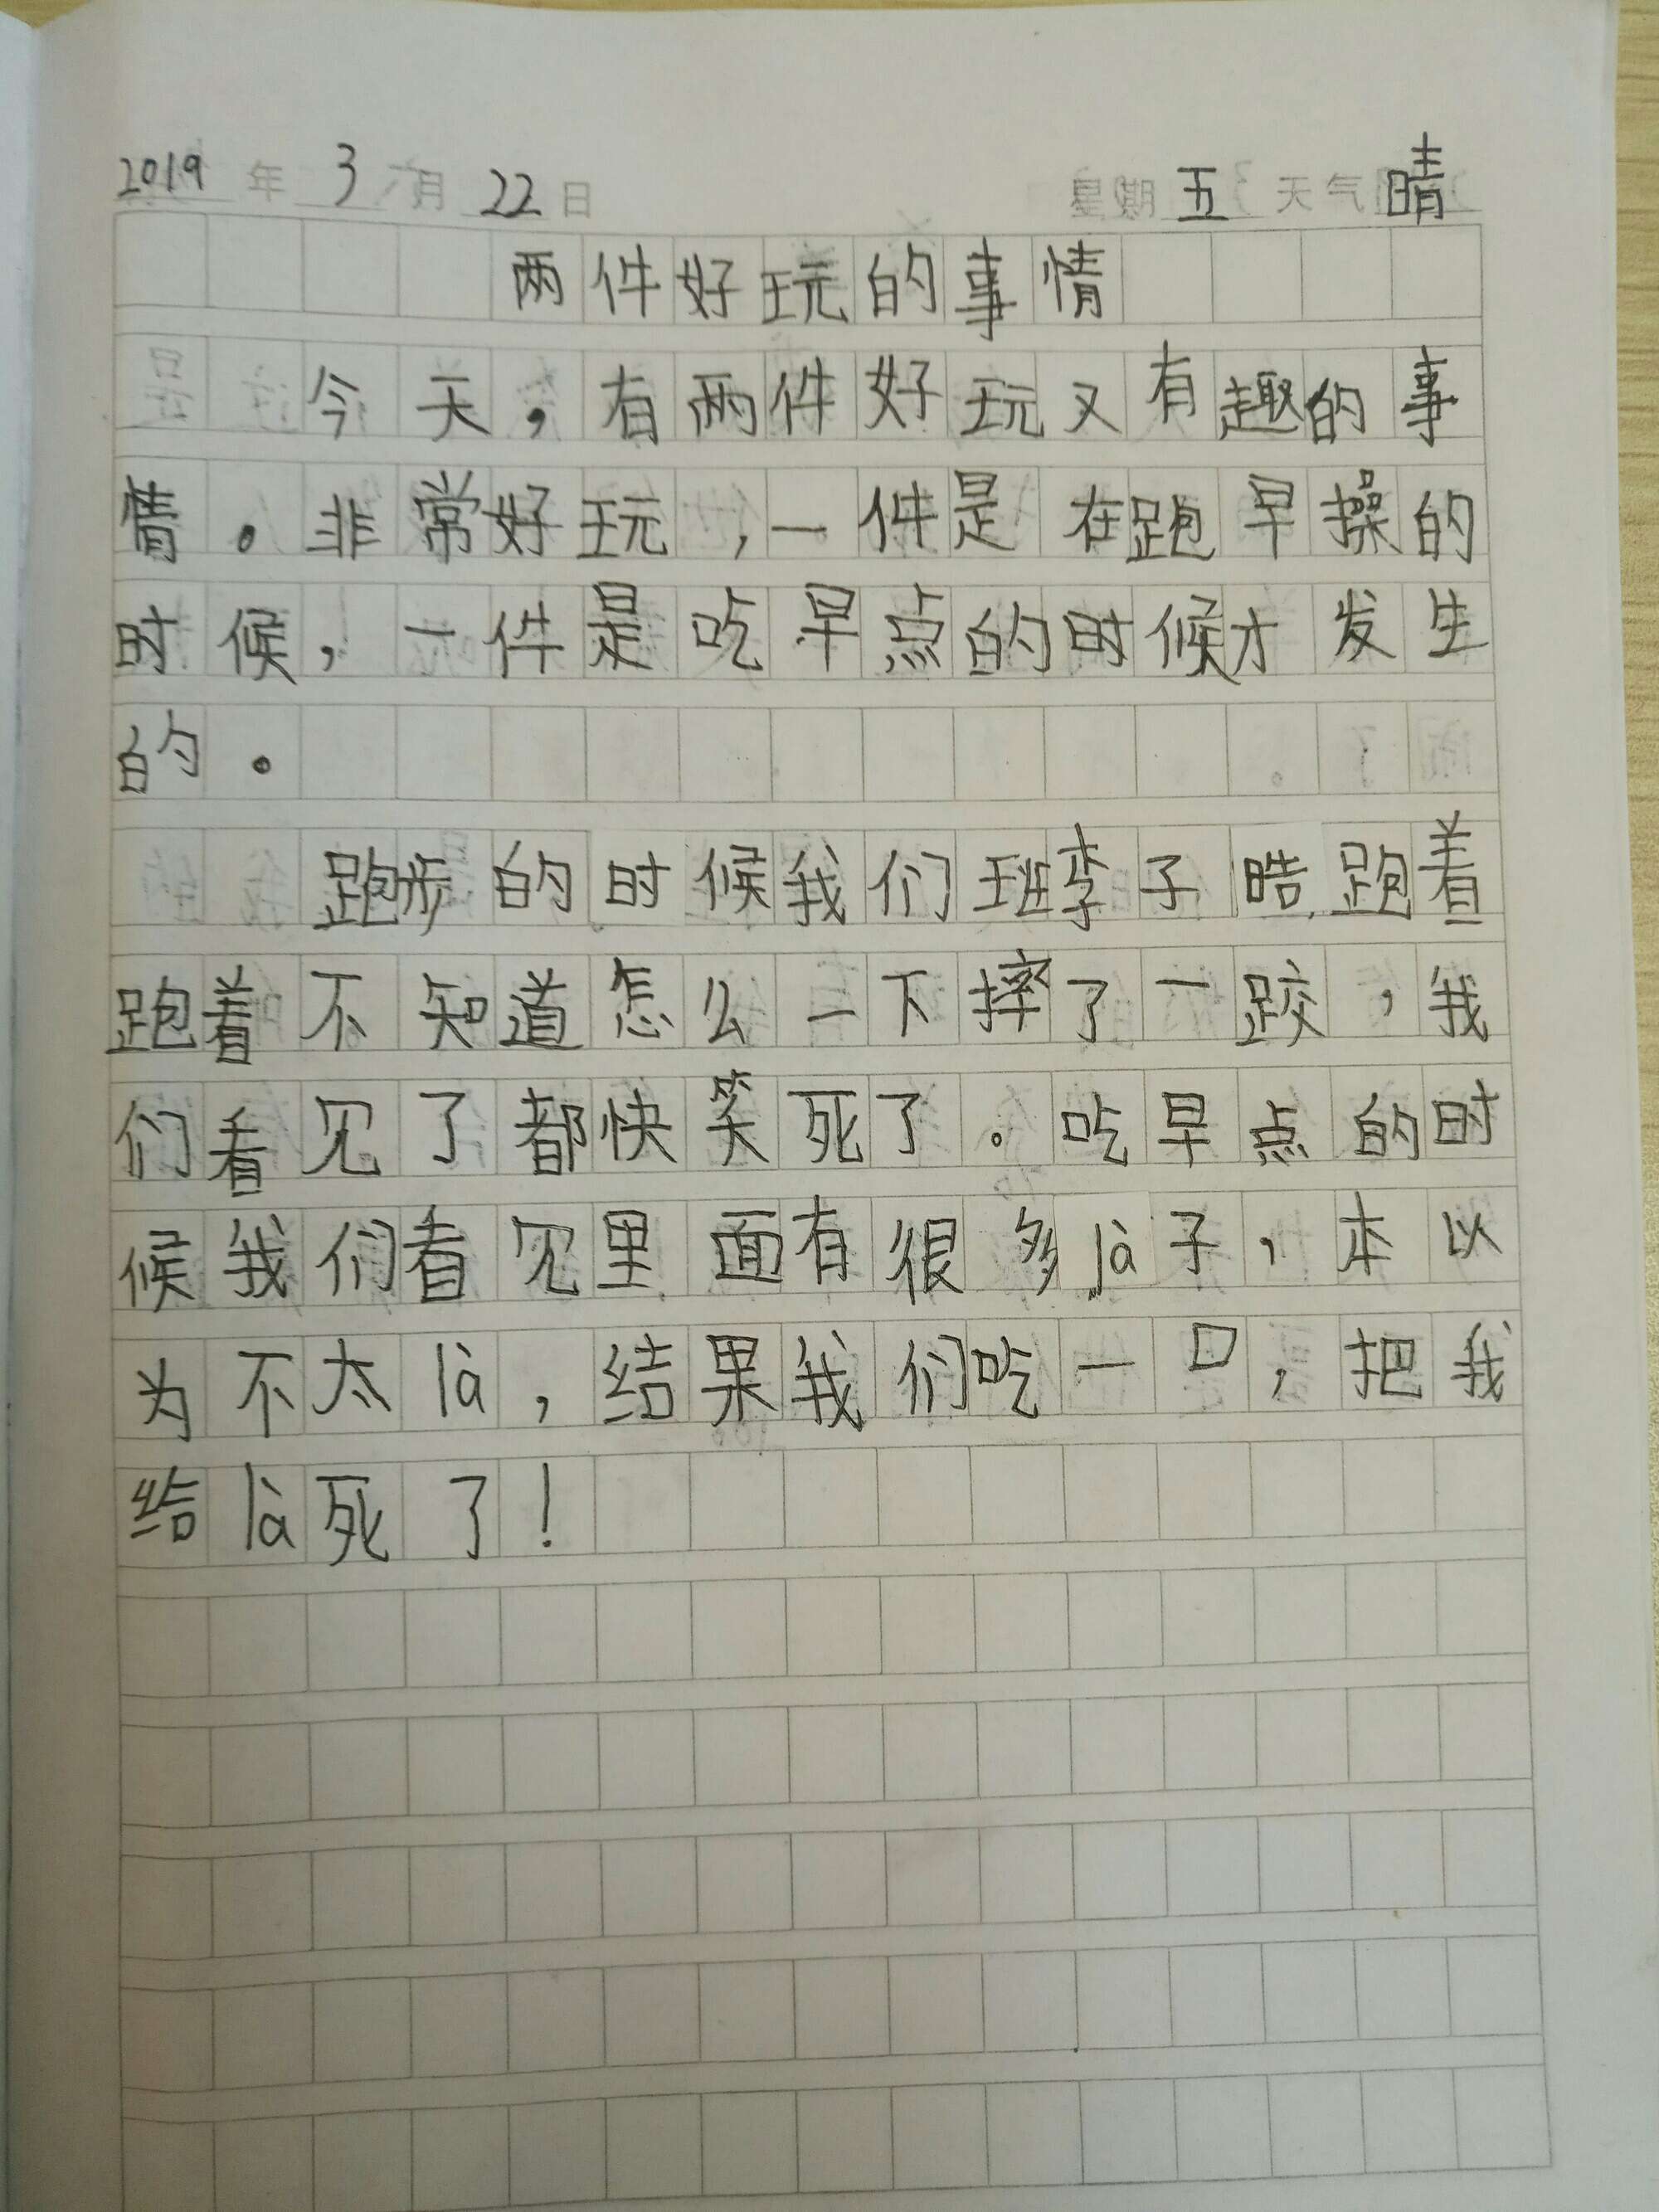 2019年3月22日 星期五 天气晴
两件好玩的事情
今天，有两件好玩又有趣的事
情。非常好玩，一件是在跑早操的
时候，一件是吃早点的时候才发生
的。
跑步的时候我们班李子晧跑着
跑着不知道怎么一下摔了一跤，我
们看见了都快笑死了。吃早点的时
候我们看见里面有很多là子，本以
为不太là，结果我们吃一口，把我
给là死了！